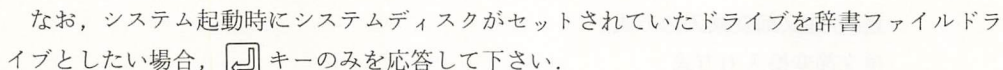 なお，システム起動時にシステムディスクがセットされていたドライブを辞書ファイルドラ
イブとしたい場合，⏎キーのみを応答して下さい．